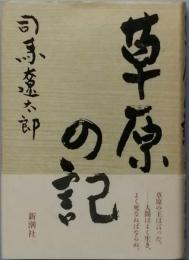 草原の記
司馬遼太郎
草原の王は言った。
──人間はよく生き、
よく死なねばならぬ。
新潮社